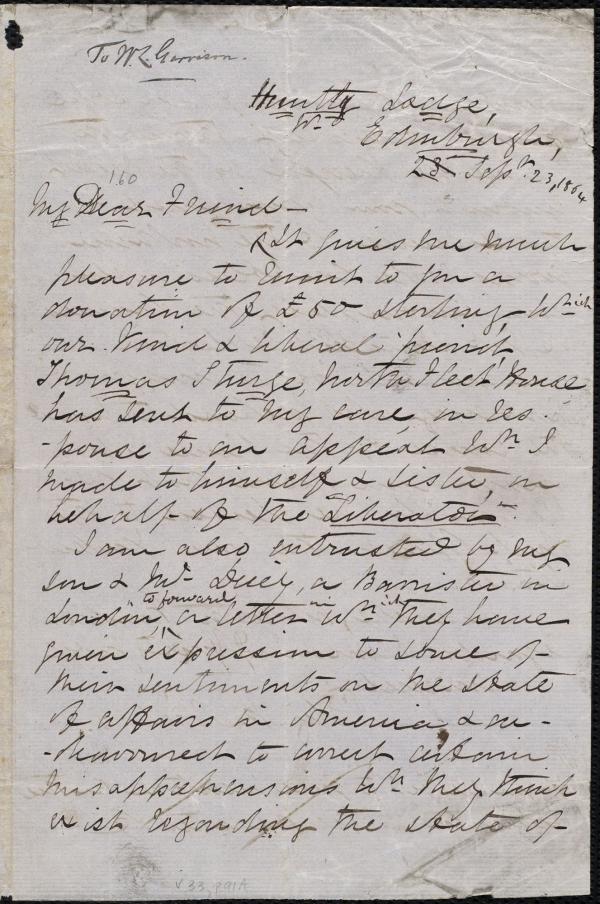 To W.L. Garrison.
Huntly Lodge,
Edinburgh,
23 Sepr. 23, 1864
160
My Dear Friend -
It gives me much
pleasure to remit to you a
donation of £50 sterling, which
our kind & liberal friend,
Thomas Sturge, North Fleet House,
has sent to my care, in res-
-ponse to an appeal wh. I
made to himself & sister, on
behalf of the "Liberator".
I am also entrusted by my
son & Mr. Dicey, a Barrister in
to forward in
London, a letter which they have
given expression to some of
their sentiments on the state
of affairs in America & en-
-deavoured to correct certain
misapprehensions wh. they think
exist regarding the state of
v 33, 991A